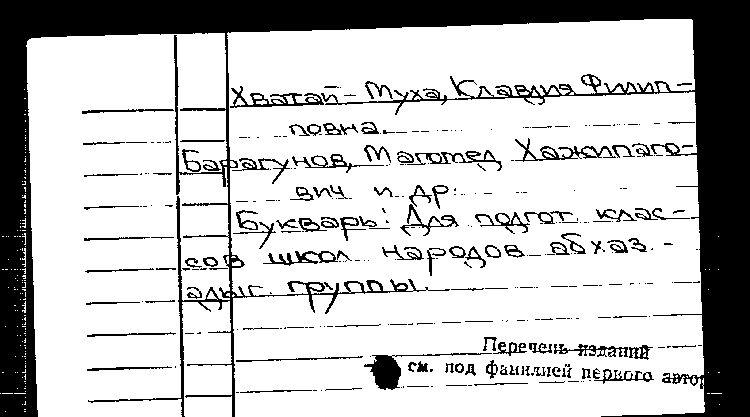 Хватай-Муха, Клавдия Филип-
повна.
Барагунов, Магомед Хажипаго-
вич и др.
Букварь: Для подгот. клас-
сов школ народов абхаз.-
адыг. группы.
Перечень изданий
см. под фамилией первого автор